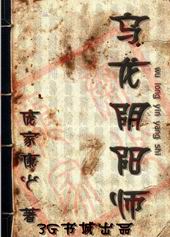 乌龙阴阳师
wu long yin yang shi
著
3G书城出品